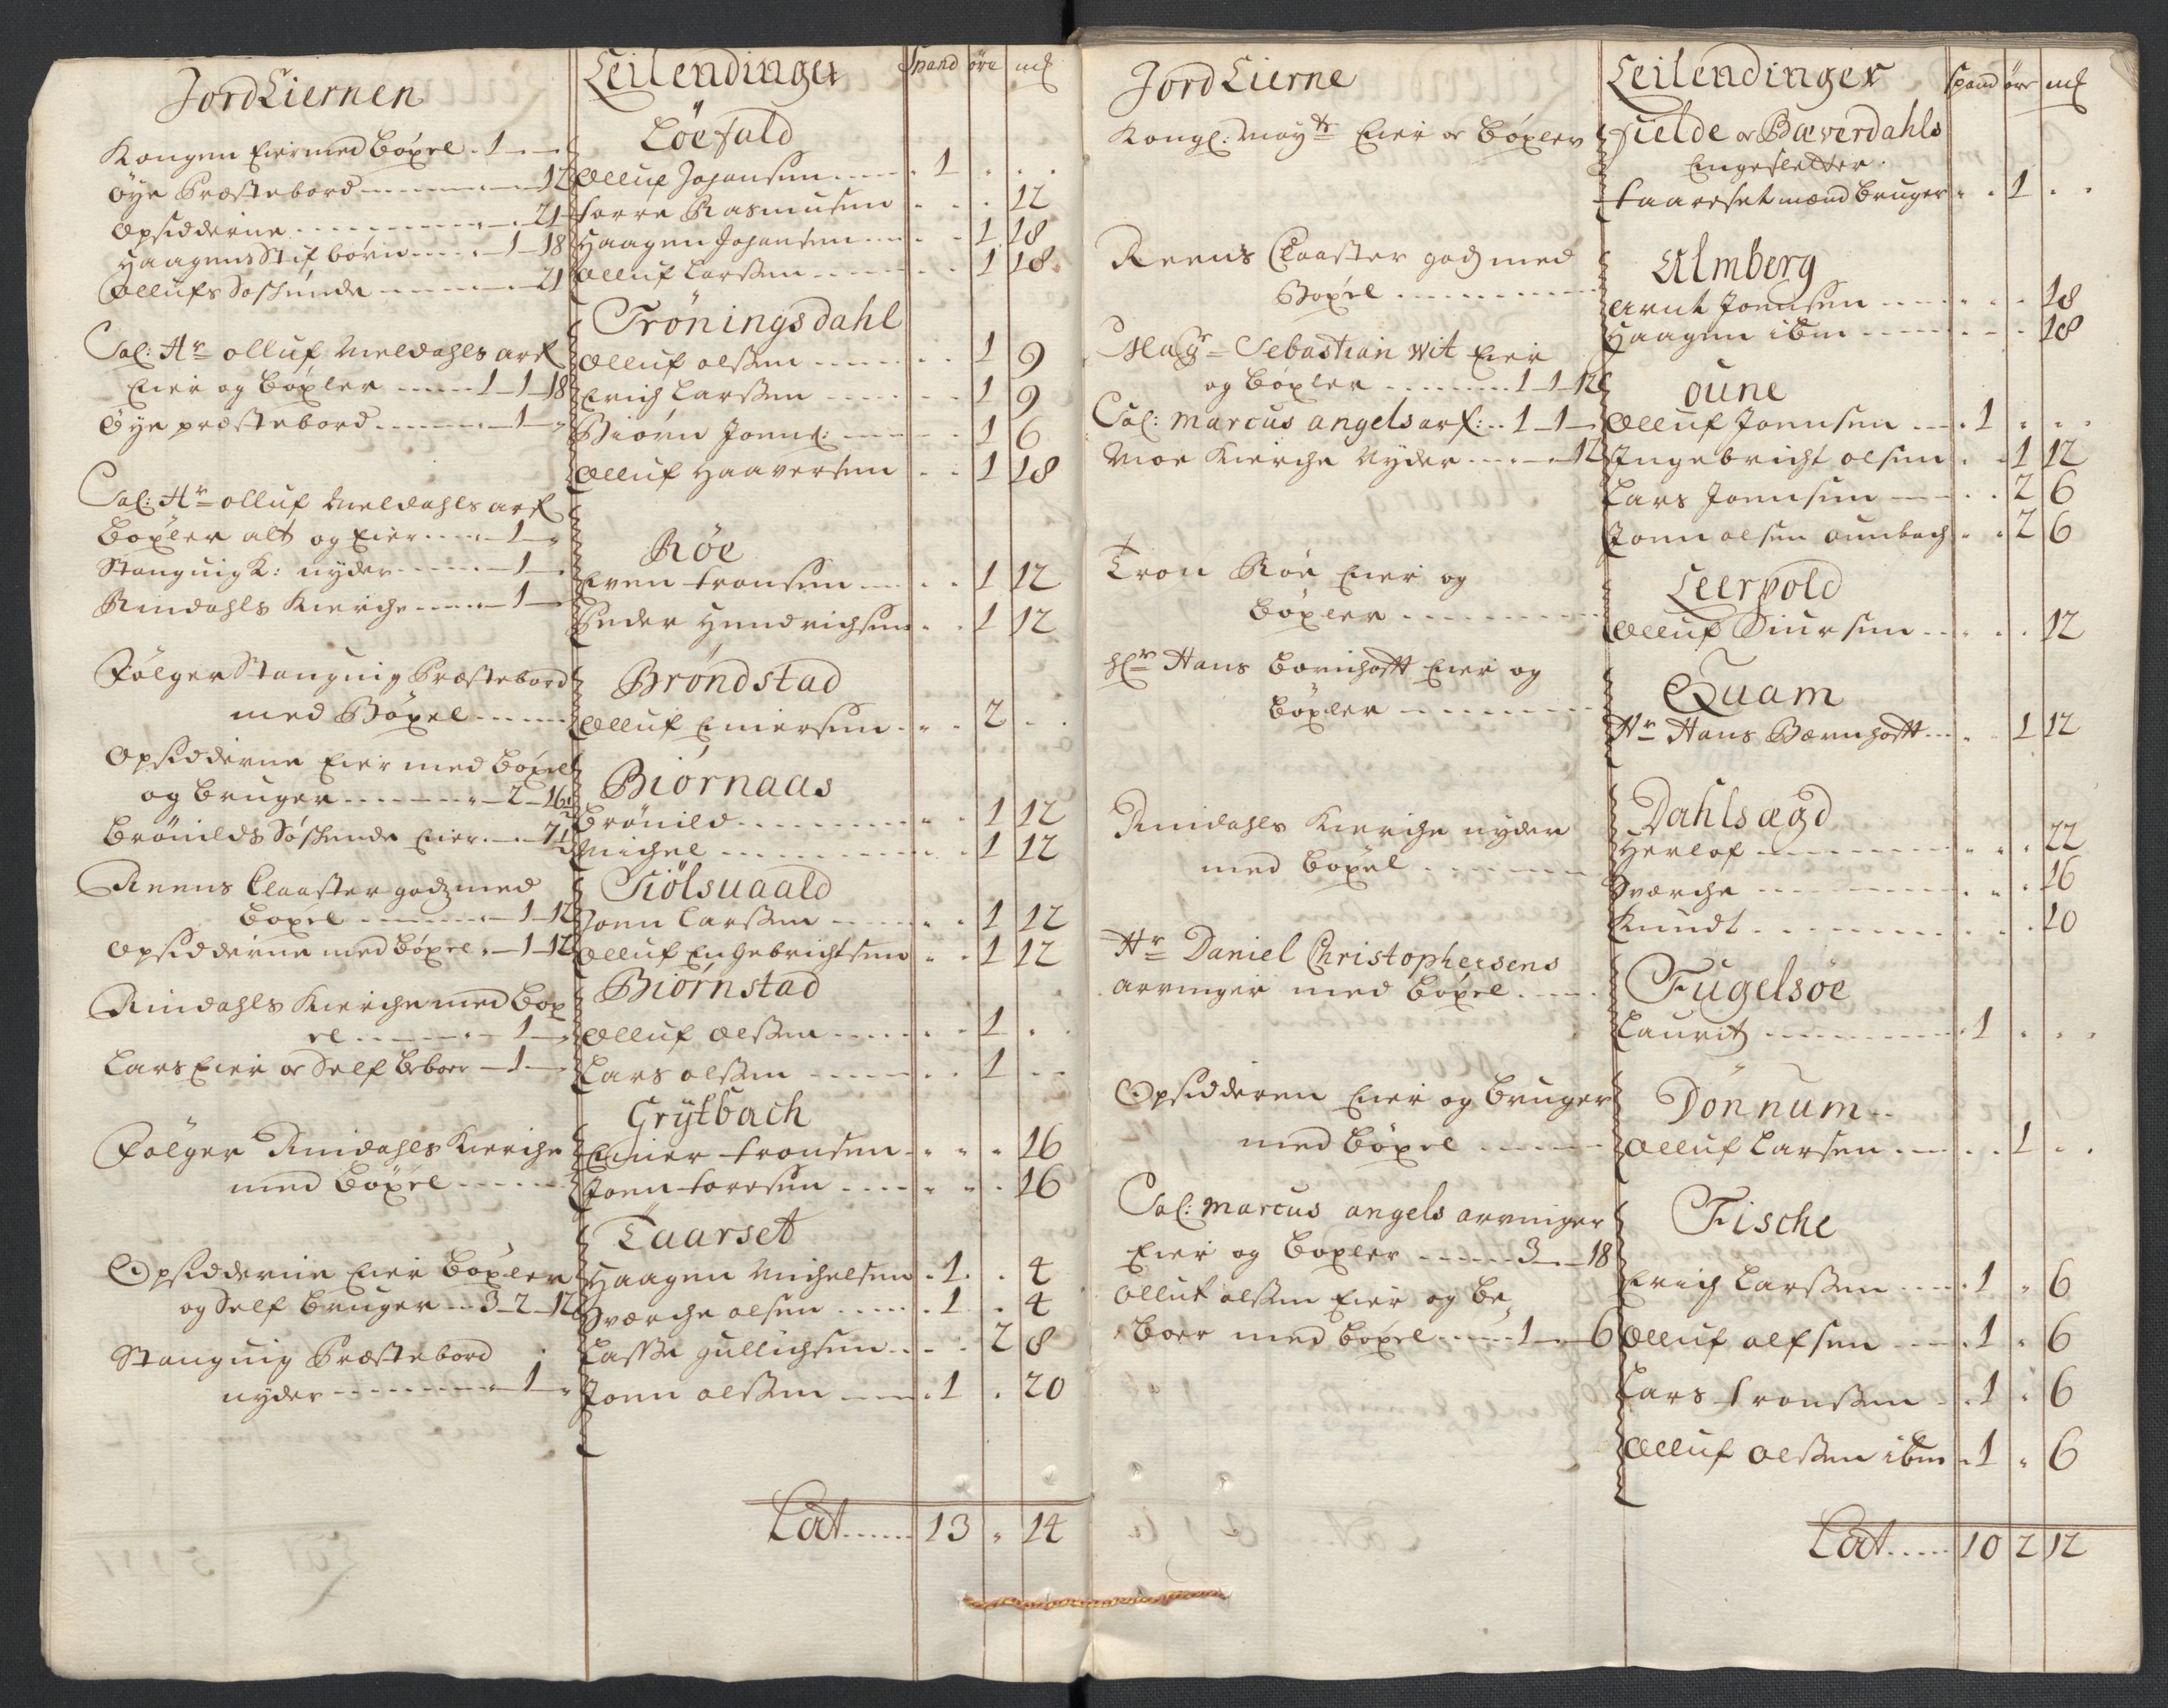 JordEiernen
Kongen Eier med böxel . 1 . —
Öÿe Præstebord — 12
Opsidderne — 21
Haagens Stifbörn — 1 — 18
Ollufs Söskinde — 21
Sal: Hr. olluf Meldahls arf.
Eier og böxler — 1 — 1 — 18
Öÿe præstebord — 1 —
Sal: Hr. olluf Meldahls arf.
böxler alt og Eier — 1 —
Stangvig K: nyder — 1 —
Rindahls Kierche — 1 —
Fölger Stangvig Præstebord
med Böxel
Opsidderne Eier med böxel
og bruger — 2 — 16½
Brönilds Söskinde Eier — 7½
Reens Claaster godz med
boxel — 1 — 12
Opsidderne med böxel — 1 — 12
Rindahls Kierche med box
el — 1 —
Lars Eier or Self beboer — 1 —
Fölger Rindahls Kierche
med böxel
Opsidderne Eier böxler
og Self bruger — 3 — 2 — 12
Stangvig Præstebord
nyder — 1 —
Leilendinger Spand öre ml
Löefald
Olluf Johansen 1 . .
Torre Rasmusen . . 12
Haagen Johansen . 1 18
Olluf Larssen . 1 18
Tröningsdahl
Olluf olssen . 1 9
Erich Larssen . 1 9
Biörn Joens: . 1 6
Olluf Haaversen . 1 18
Röe
Even Tronsen . 1 12
Peder Hendrichsen . 1 12
Bröndstad
Olluf Einersen . 2 .
Biörnaas
Brönild . 1 12
Michel . 1 12
Tiölsuaald
Joen Larssen . 1 12
Olluf Engebrichtsen . 1 12
Biörnstad
Olluf olssen . 1 .
Lars olssen . 1 .
Grÿtbach
Einer Tronsen . . 16
Joen Toresen . . 16
Taarset
Haagen Michelsen . 1 . 4
Sverche olsen . 1 . 4
Lasse Gullichsen . 2 8
Joen olssen . 1 . 20
Lat 13 . 14
Jord Eierne
Kongl: Maÿts Eier or böxler
Reens Claaster godz med
Boxel
Magr. Sebastian Wit Eier
og böxler — 1 — 1 — 12
Sal: Marcus angels arf: 1 — 1 —
Moe Kierche Nÿder — 12
Tron Röe Eier og
böxler
Hr. Hans bernhoft Eier og
böxler
Rindahls Kierche nyder
med böxel
Hr. Daniel Christophersens
arvinger med böxel
Opsidderen Eier og bruger
med böxel
Sal: Marcus angels arvinger
Eier og böxler — 3 — 18
Olluf olssen Eier og be,
boer med böxel — 1 — 6
Leilendinger Spand öre ml
Fielde or Bæverdahls
Engesletter.
Taarset mænd bruger . 1 . .
Almberg
Arnt Joensen . . 18
Haagen ibm . . 18
oune
Olluf Joensen 1 . .
Ingebricht olsen . 1 12
Lars Joensen . 2 6
Joen olsen ounbach . 2 6
Leervold
Olluf Siursen . . 12
Quam
Hr. Hans Bernhoft . 1 12
Dahlsægd
Herlof . . 22
Sverche . . 16
Knudt . . 10
Fugelsöe
Lauritz 1 . .
Dönnum
Olluf Larsen . 1 . .
Fische
Erich Larssen 1 . 6
Olluf alfsen 1 . 6
Lars Tronssen 1 . 6
Olluf olssen ibm 1 . 6
Lat 10 2 12